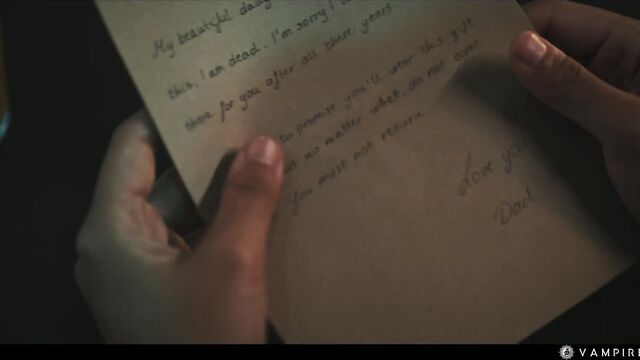 My beautiful daug
this, I am dead. I'm sorry I c
there for you after all these years.
to promise you'll wear this gift
no matter what, do not come
You must not return.
Love you
Dad
VAMPIR